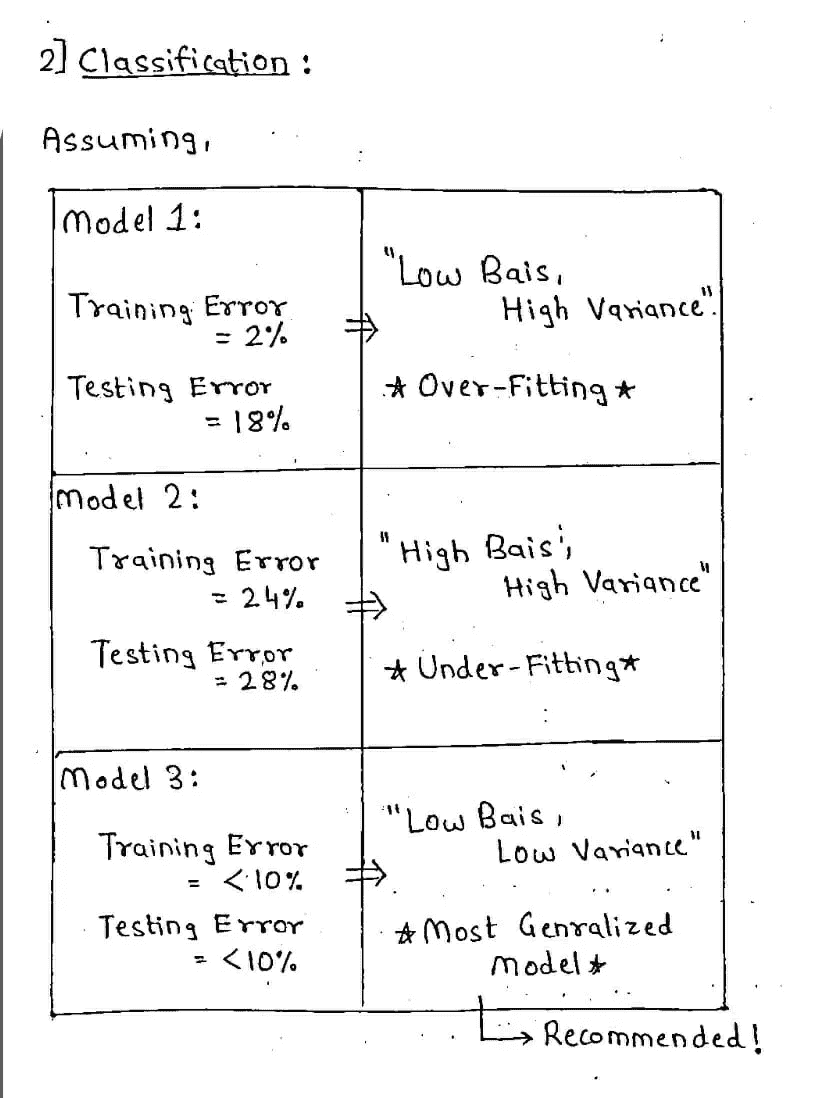 2] Classification :
Assuming,
Model 1:
Training Error
= 2%
Testing Error
= 18%
⇒
"Low Bais,
High Variance".
★ Over-Fitting ★
Model 2:
Training Error
= 24%
Testing Error
= 28%
⇒
"High Bais',
High Variance"
★ Under-Fitting ★
Model 3:
Training Error
= <10%
Testing Error
= <10%
⇒
"Low Bais,
Low Variance"
★ Most Genralized
Model ★
↳ Recommended!